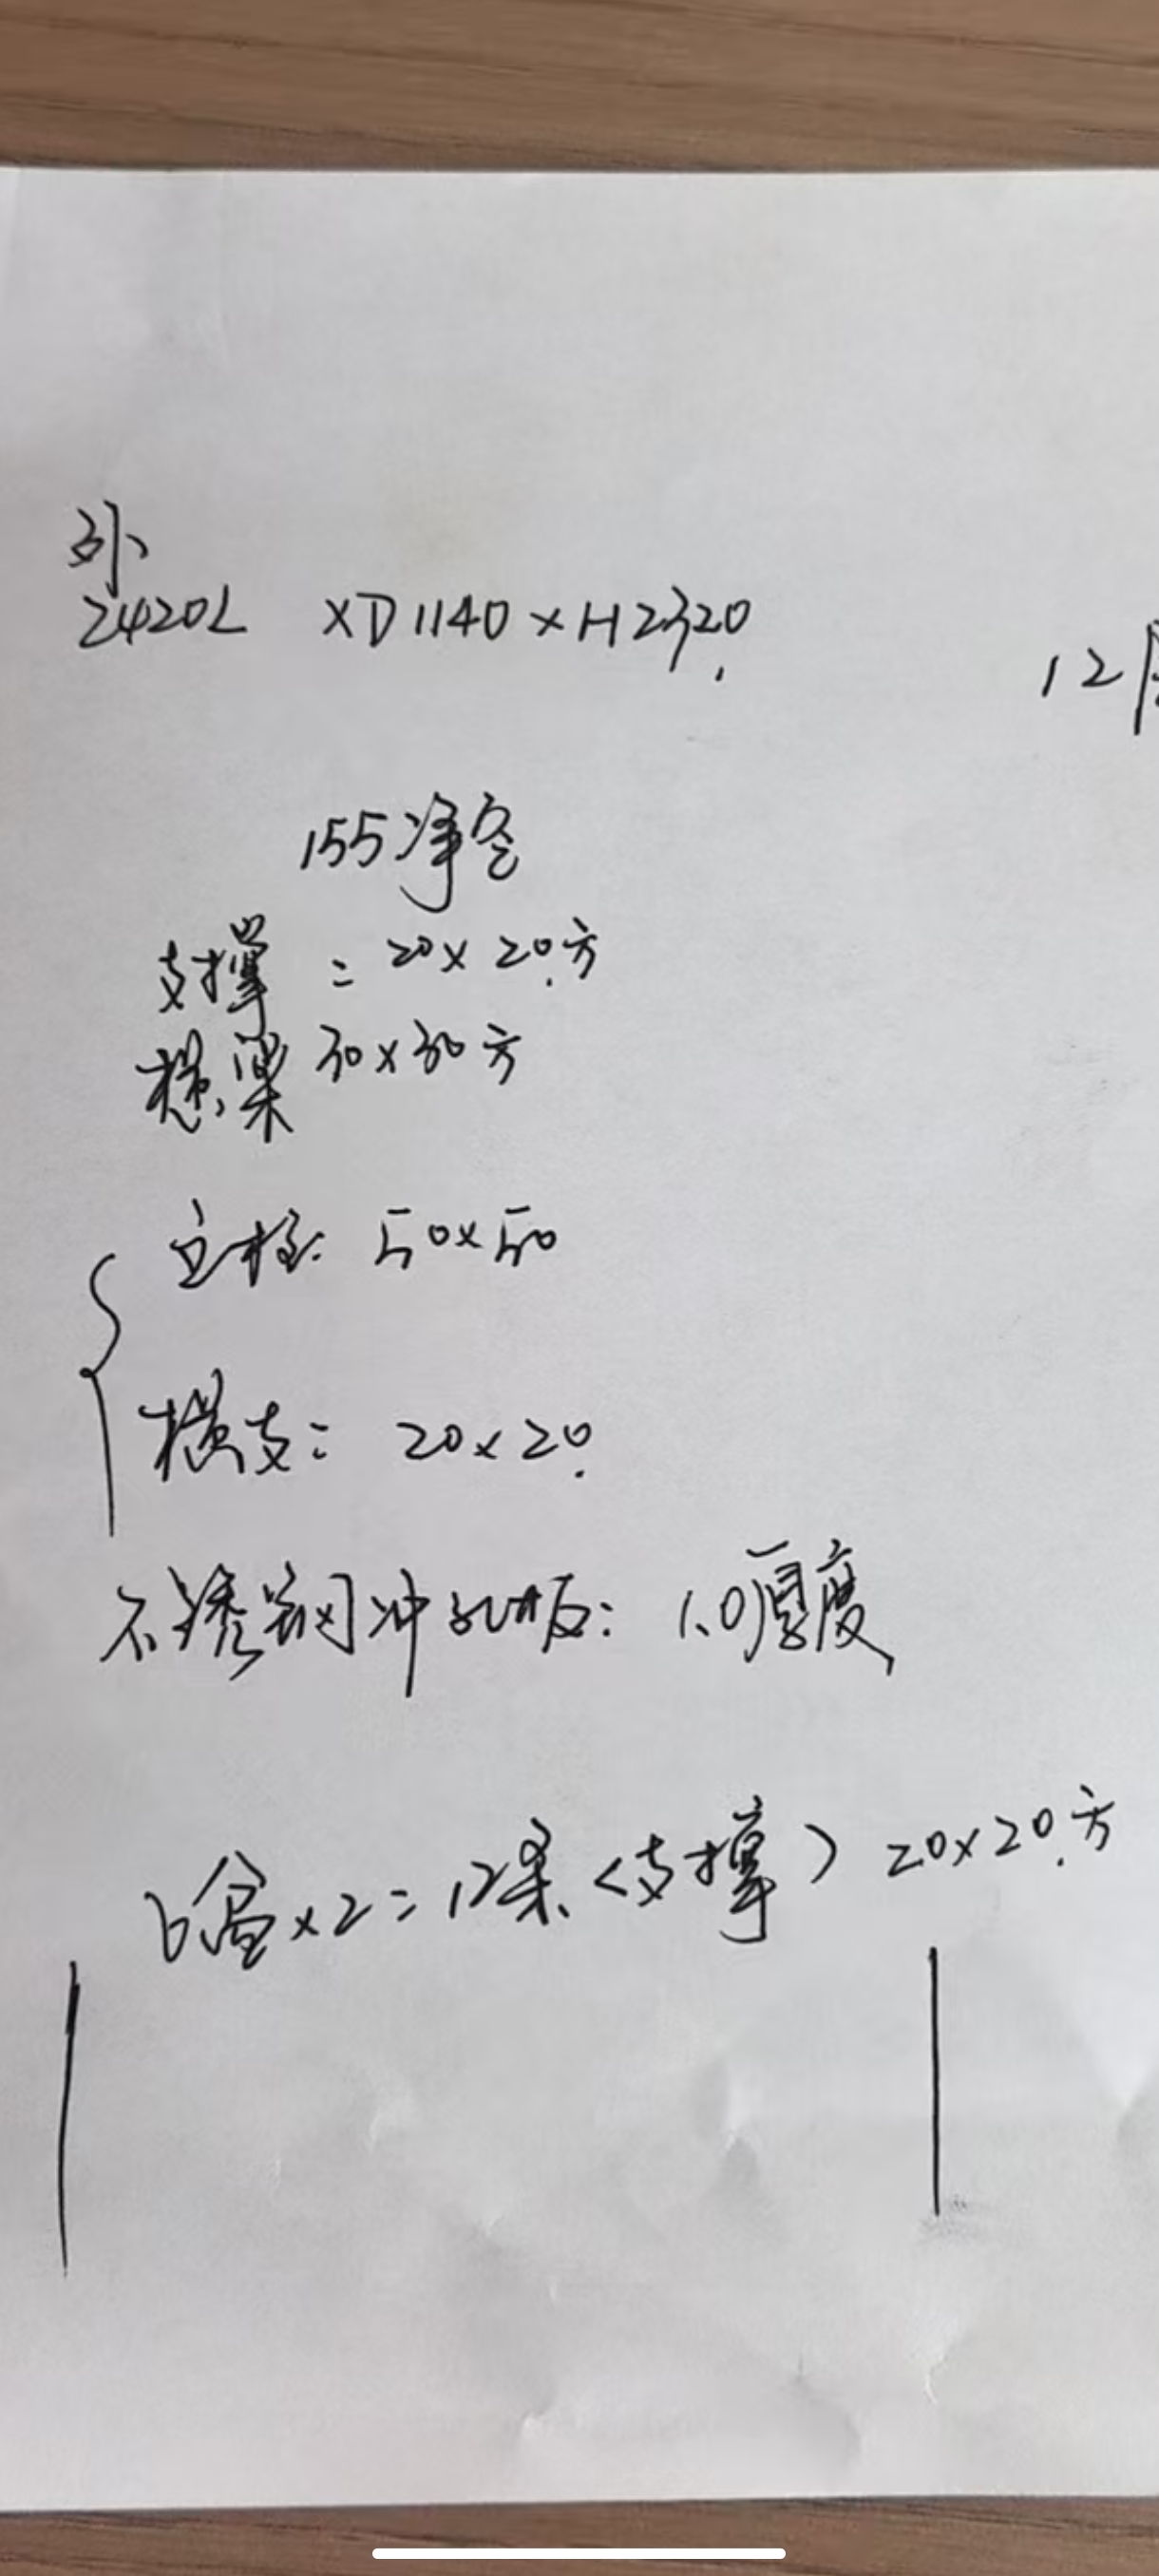 外
2420L ×D1140×H2320
12层
155净空
支撑 = 20×20方
横梁 30×30方
立柱: 50×50
横支: 20×20
不锈钢冲孔板: 1.0厚度
6盒×2=12条<支撑> 20×20方